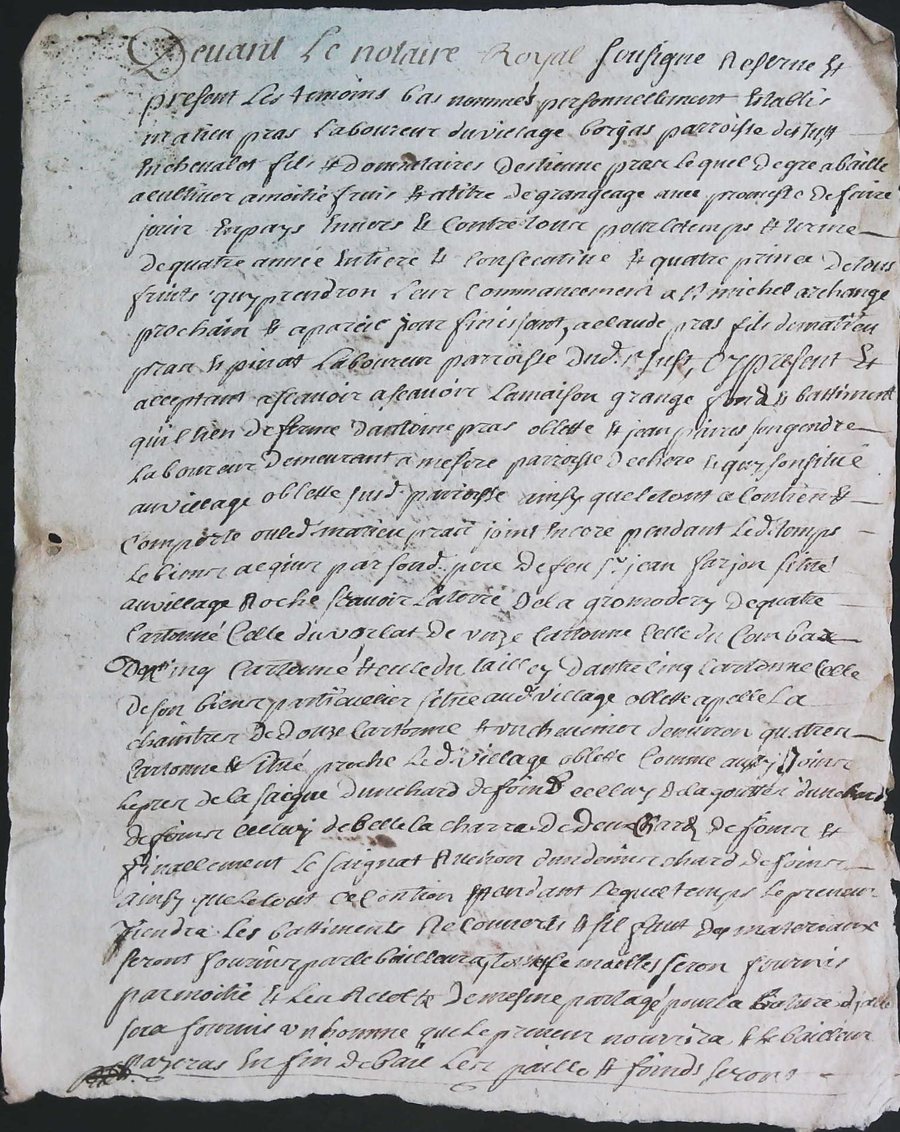 Devant Le notaire Royal sousigne Reserve et
present Les temoins bas nommés personnellement establis
matieu pras Laboureur du village borgas parroisse de st just
en chevalet fils et donnataires destienne pras lequel de gre a baille
a cultiver a moitie fruis et a titre de grangeage avec promesse de faire
jouir en pays envers et contre tous pour le temps et terme
de quatre année entiere et consecutive et quatre prince de tous
fruits quy prendron leur commancement a st michel archange
prochain et a pareil jour finissant, a claude pras fils de matieu
pras et pinat Laboureur parroisse dud. st just, cy present et
acceptant a scavoir a scavoir La maison grange fond et battiment
qu'il tien de ferme d'antoine pras oblette et jean son gendre
Laboureur demeurant a parroisse de et quy son situé
au village oblette susd. parroisse ainsy que le tout ce contien et
comporte ou led. matieu pras joint encore pendant led. temps
le bienc acquis par sond. pere de feu sr. jean farjon situé
au village Roche scavoir La terre de la gromodery de quatre
cartonné celle du vorlat de unze cartonne celle du combax
de cinq cartonné et celle du tailley d'autre cinq cartonne celle
de son bienc particullier situe aud. village oblette apelle La
chaintre de douze cartonne et un d'environ quatre
cartonne et situé proche led. village oblette comme aussy joint
le prez de la saigne d'un chard de foin et celluy de la goutte d'un chard
de foint celluy de belle la charra de deux chard de foint et
finallement le saignat d'un demit chard de foint
ainsy que le tout ce contien pendant lequel temps le preneur
tiendra les battiments Recouverts et sil faut des materiaux
seront fournir par le bailleur, semailles seron fournis
par moitie et les Recolte de mesme partagé pour la
sera fournis un homme que le preneur nourrira et le bailleur
payeras en fin de bail les paille et foinds seront